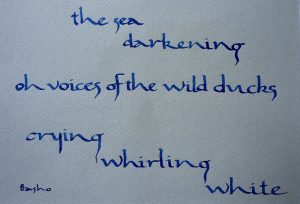 the sea
darkening
oh voices of the wild ducks
crying
whirling
white
Basho